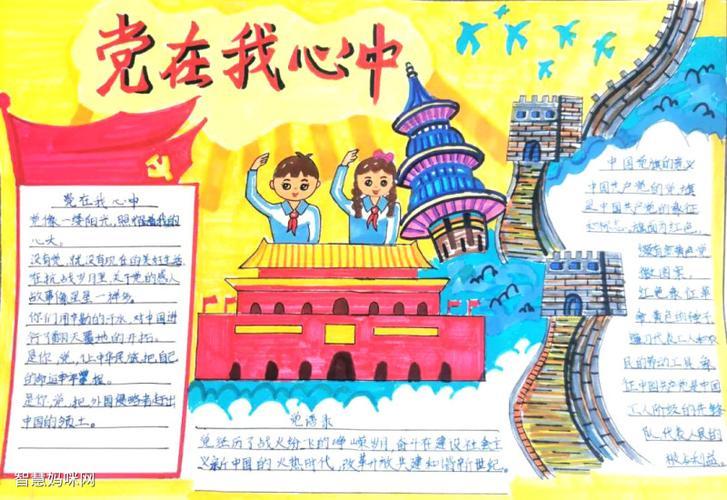 党在我心中
党在我心中
党像一缕阳光，照耀着我的
心灵。
没有党，就没有现在的美好生活
在抗战岁月里，关于党的感人
故事像星星一样多。
你们用辛勤的汗水，对中国进
行了翻天覆地的开拓。
是你，党，让中华民族把自己
的命运牢牢掌握。
是你，党，把外国侵略者赶出
中国的领土。
党语录
党经历了战火纷飞的峥嵘岁月，奋斗在建设社会主
义新中国的火热时代，改革开放共建和谐新世纪。
中国党旗的意义
中国共产党的党旗
是中国共产党的象征
和标志，旗面为红色，
缀有金黄色党
徽图案。
红色象征革
命黄色的锤子
镰刀代表工人和农
民的劳动工具，象
征中国共产党是中国
工人阶级的先锋
队，代表人民的
根本利益。
智慧妈咪网